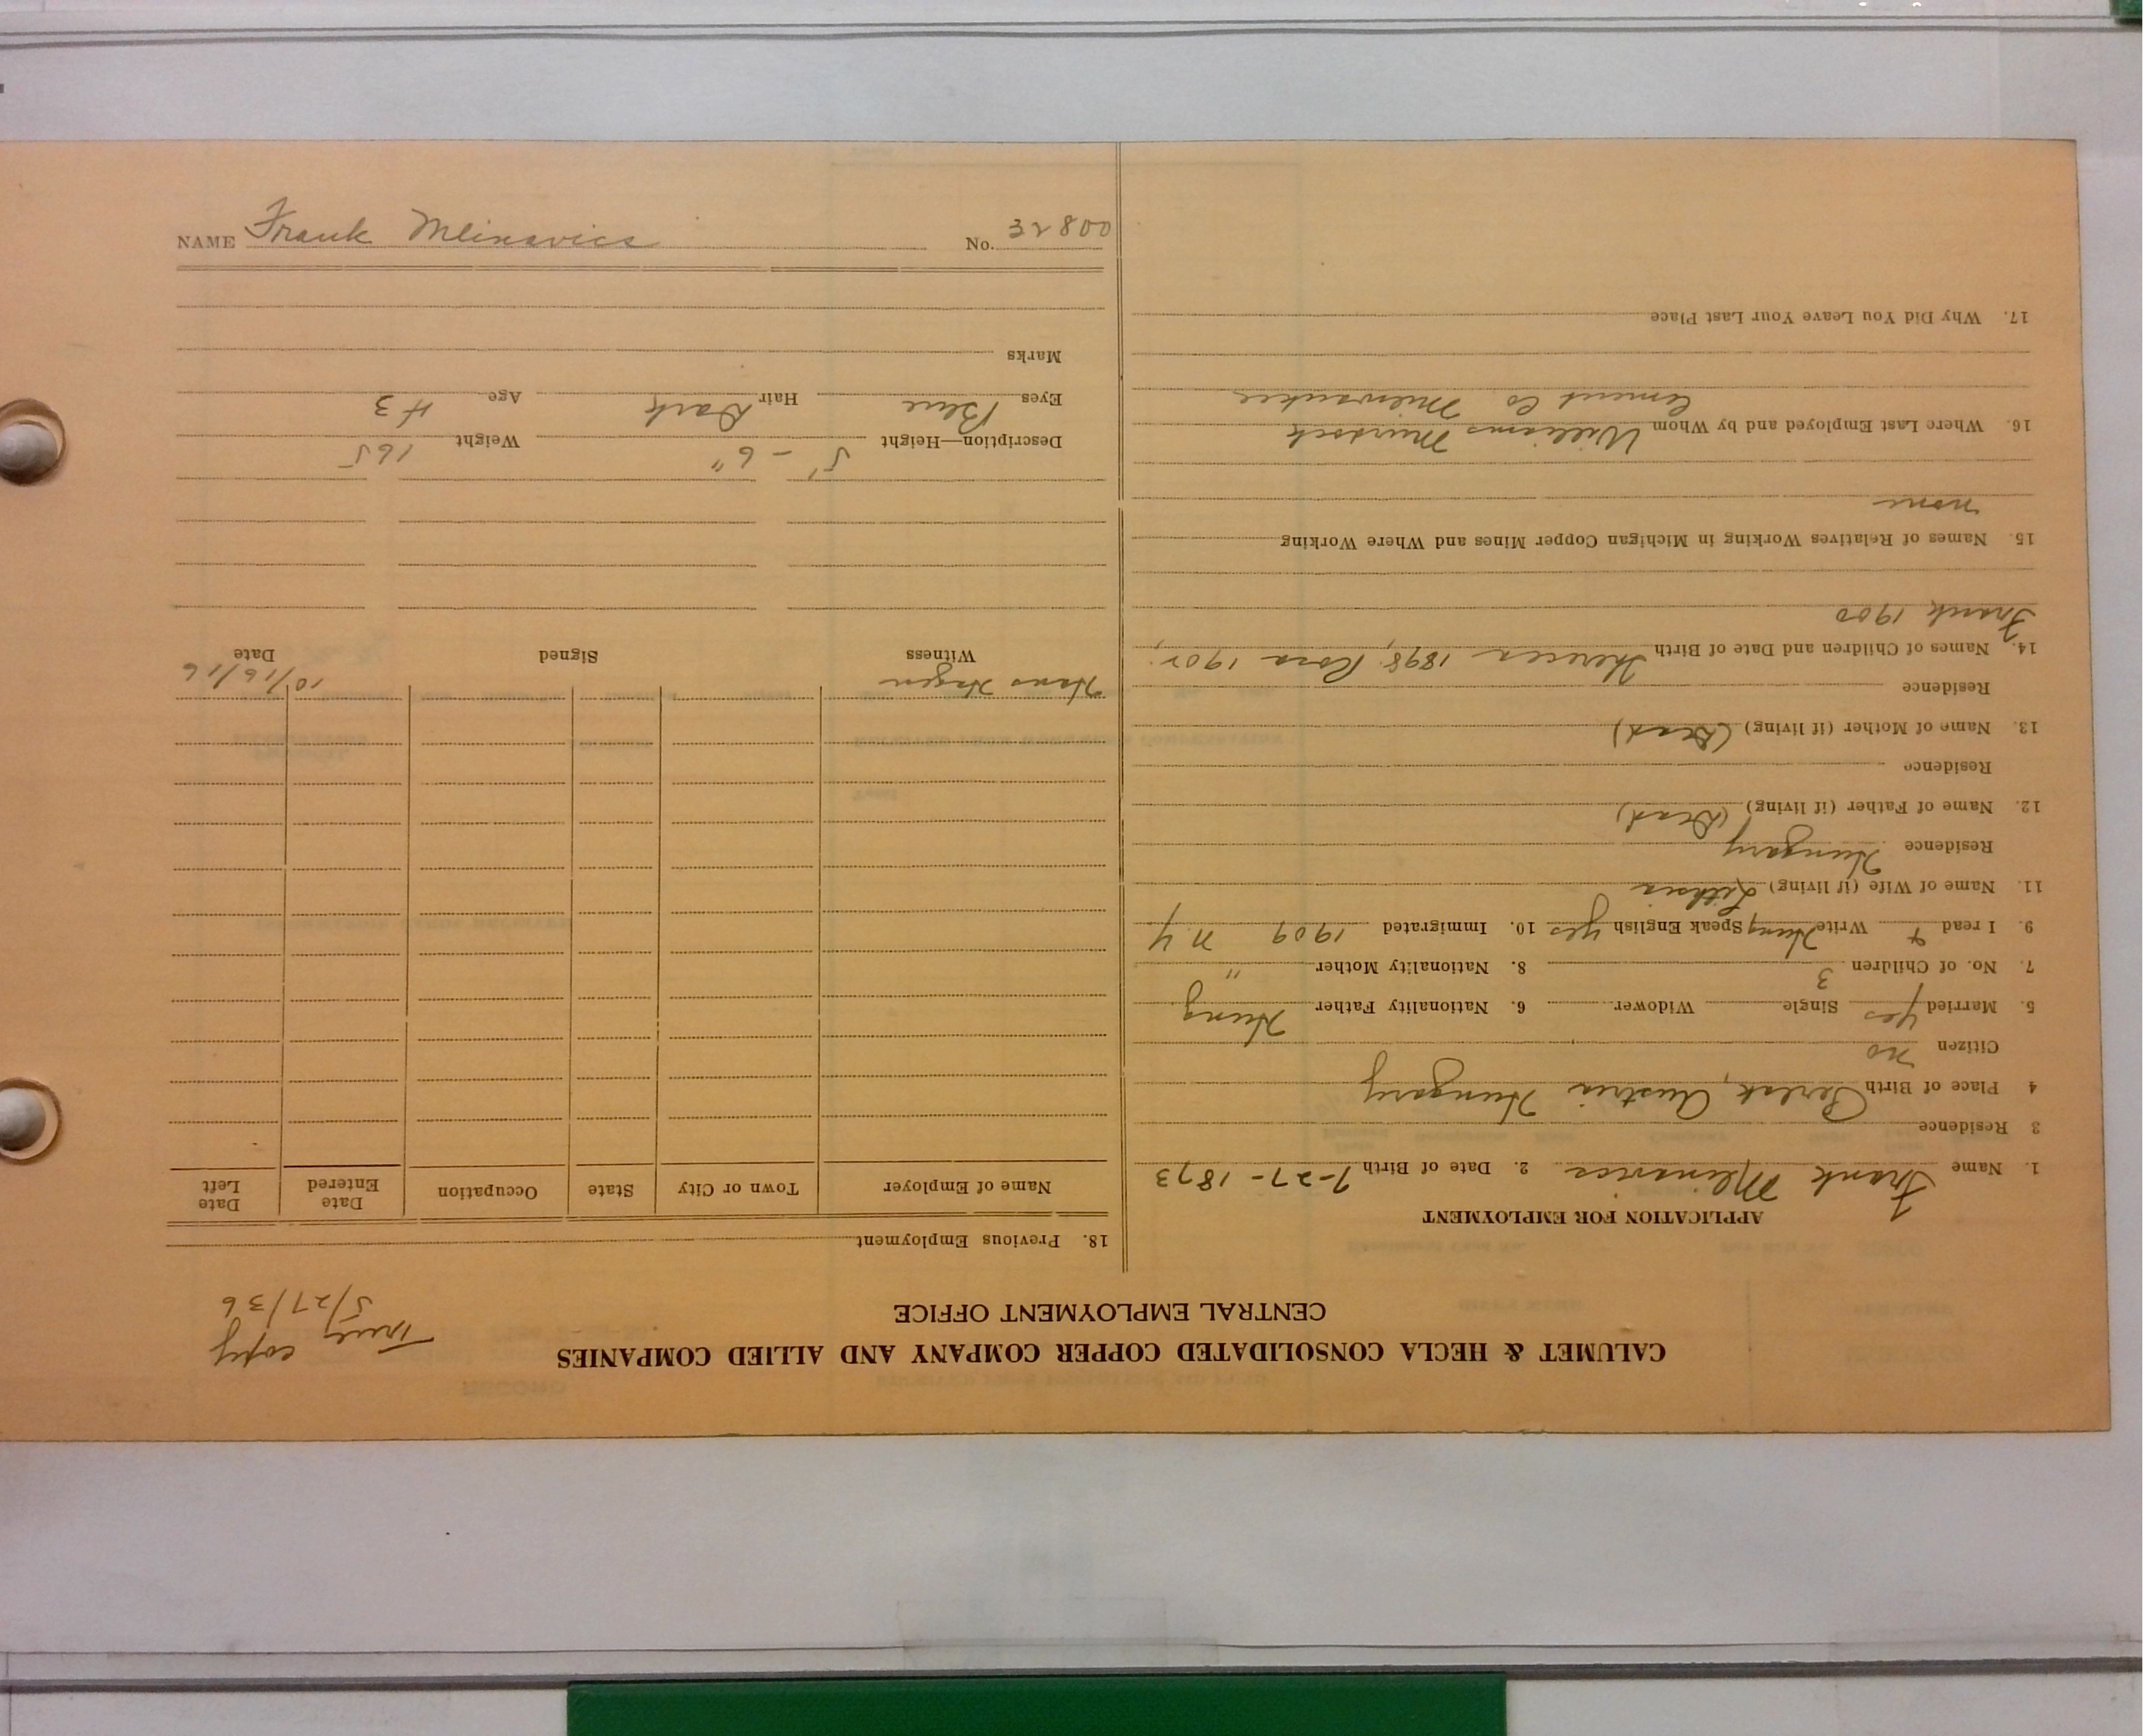 CALUMET & HECLA CONSOLIDATED COPPER COMPANY AND ALLIED COMPANIES
CENTRAL EMPLOYMENT OFFICE
True copy
5/27/36
APPLICATION FOR EMPLOYMENT
1. Name Frank Mlinavics 2. Date of Birth 7-27-1873
3 Residence
4 Place of Birth Perlak, Austria Hungary
Citizen no
5. Married yes Single Widower 6. Nationality Father Hung
7. No. of Children 3 8. Nationality Mother "
9. I read + Write Hung Speak English yes 10. Immigrated 1909 N.Y
11. Name of Wife (if living)
Residence Hungary
12. Name of Father (if living) (Dead)
Residence
13. Name of Mother (if living) (Dead)
Residence
14. Names of Children and Date of Birth 1898, Rosa 1902,
Frank 1900
15. Names of Relatives Working in Michigan Copper Mines and Where Working
none
16. Where Last Employed and by Whom Williams Murdock
Cement Co Milwaukee
17. Why Did You Leave Your Last Place
18. Previous Employment
Name of Employer Town or City State Occupation Date Entered Date Left
Hans Hagen 10/16/16
Witness Signed Date
Description—Height 5'-6" Weight 165
Eyes Blue Hair Dark Age 43
Marks
NAME Frank Mlinavics No. 32800